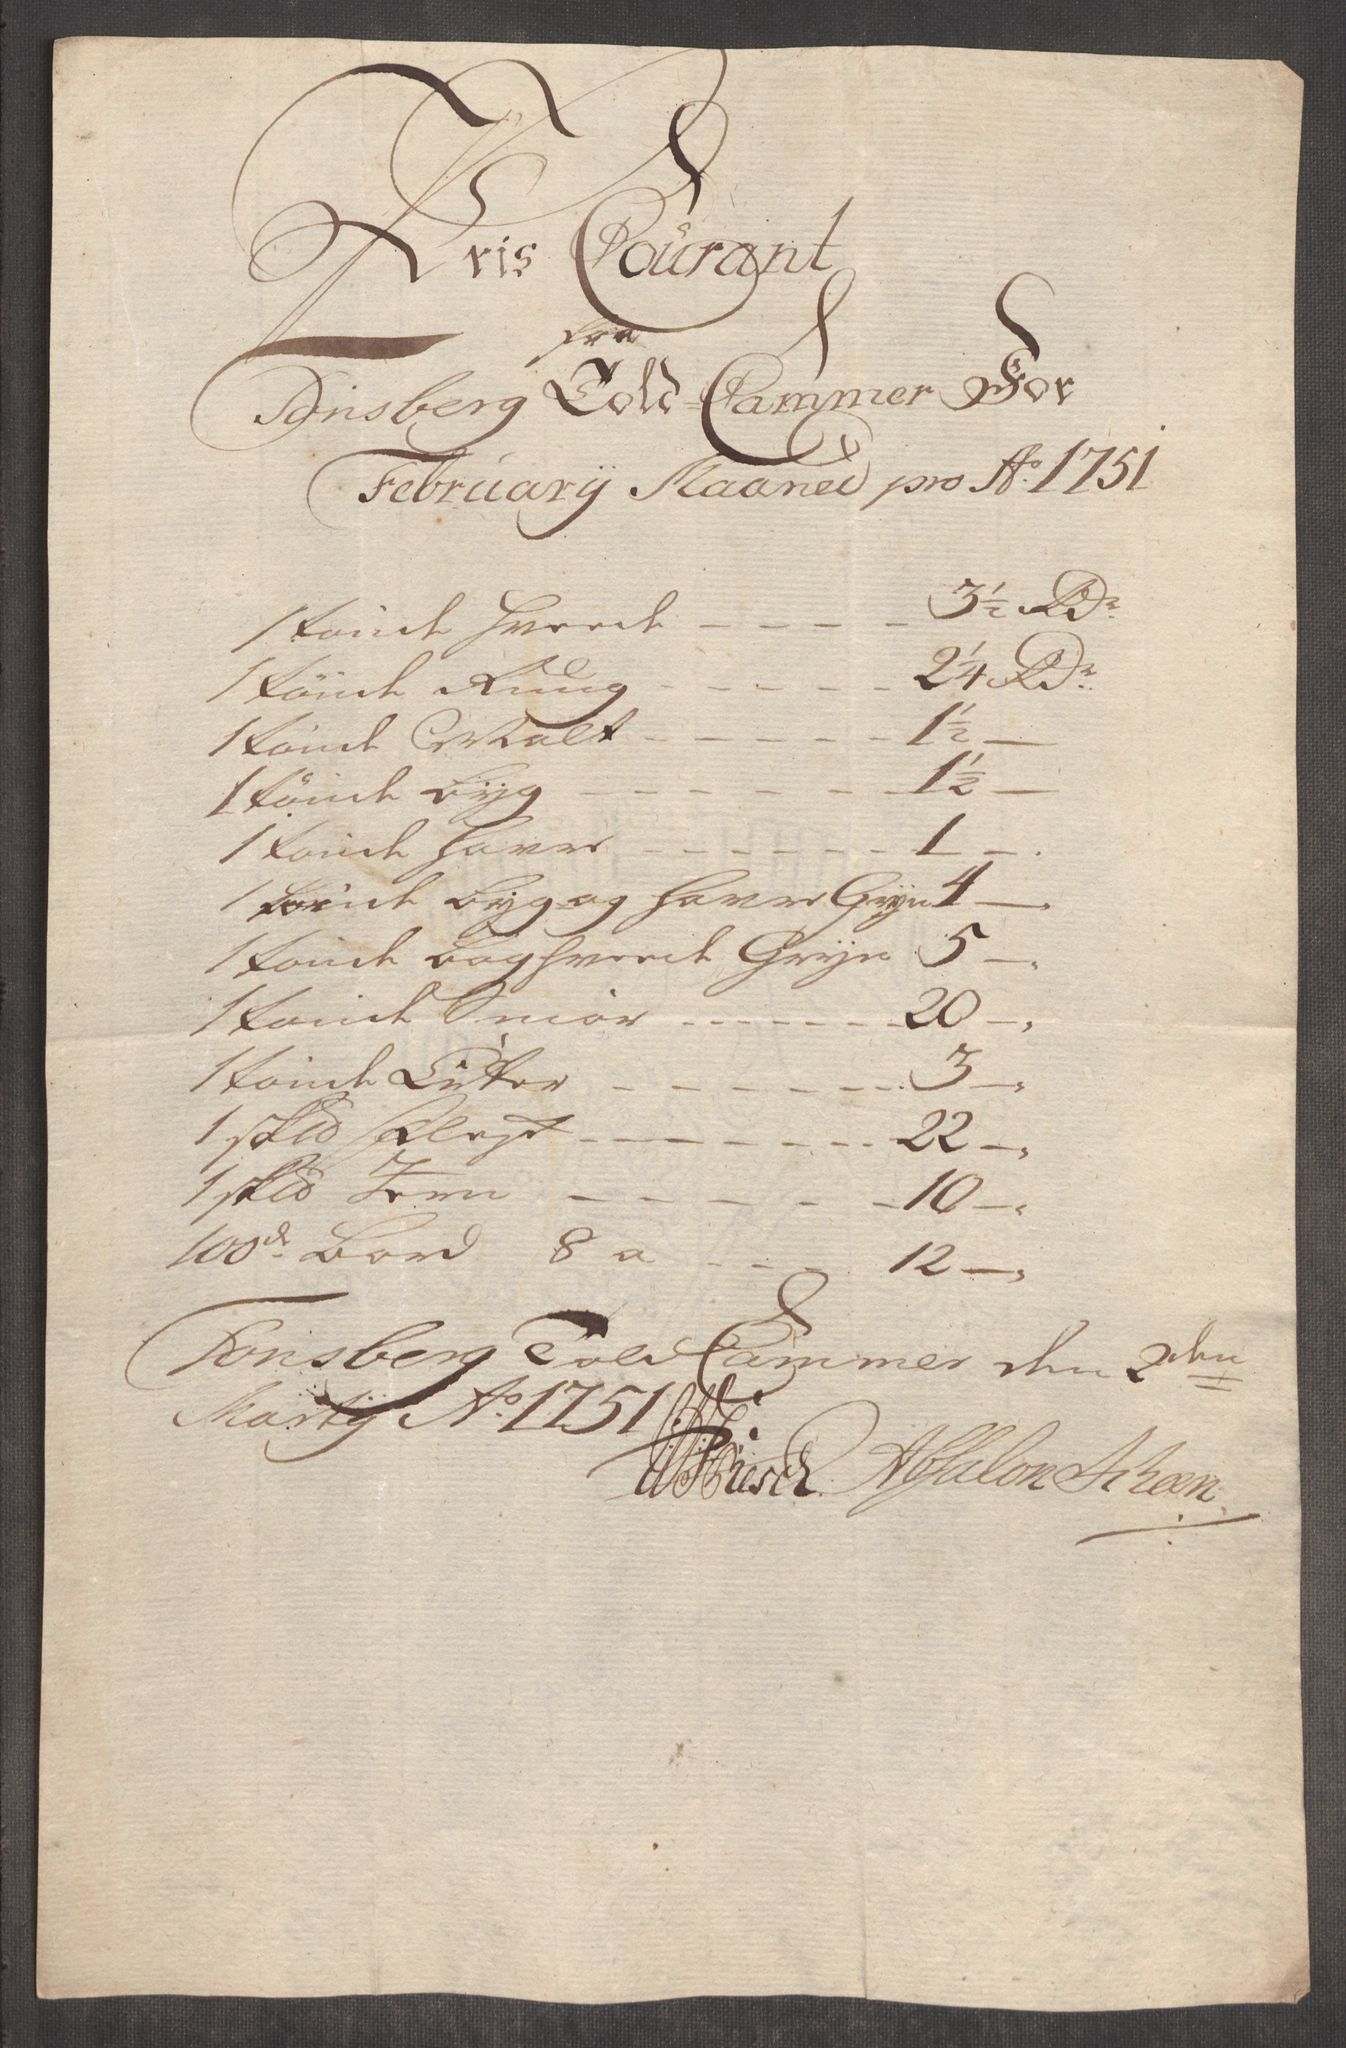 Pris Courant
fra
Tønsberg Told-Cammer For
Februarÿ Maaned pro Ao. 1751
1 tønde Hvede - - - - 3½ Rdr.
1 tønde Rúug - - - - - 2¼ Rdr.
1 tønde Malt - - - - - 1½ —
1 tønde Byg - - - - - - 1½ —
1 tønde Havre - - - - - - 1 —
1 tønde Byg og Havre Gryn 4 —
1 tønde Boghvede Gryn 5 —
1 tønde Smør - - - - - - 20 —
1 tønde - - - - - - 3 —
1 sk℔ - - - - - - 22 —
1 sk℔ Jern - - - - - - 10 —
100de. Bord 8 a - - - - 12 —
Tonsberg Told Cammer den 2den
Martÿ Ao. 1751
Absalon